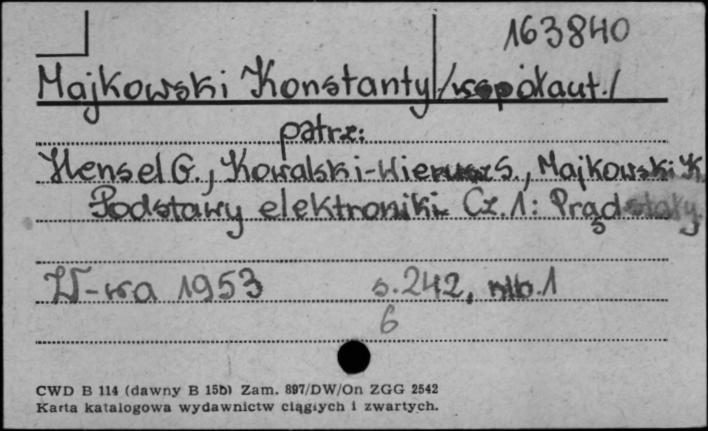 163840
Majkowski Konstanty /współaut./
patrz:
Hensel G., Kowalski-Wierusz S., Majkowski K.
Podstawy elektroniki Cz. 1: Prąd stały.
W-wa 1953 s. 242, nlb. 1
6
CWD B 114 (dawny B 15b) Zam. 897/DW/On ZGG 2542
Karta katalogowa wydawnictw ciągłych i zwartych.